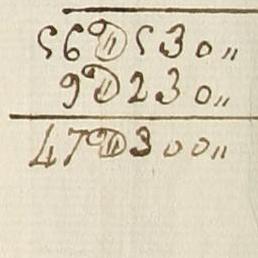 56D530"
9D230"
47D300"